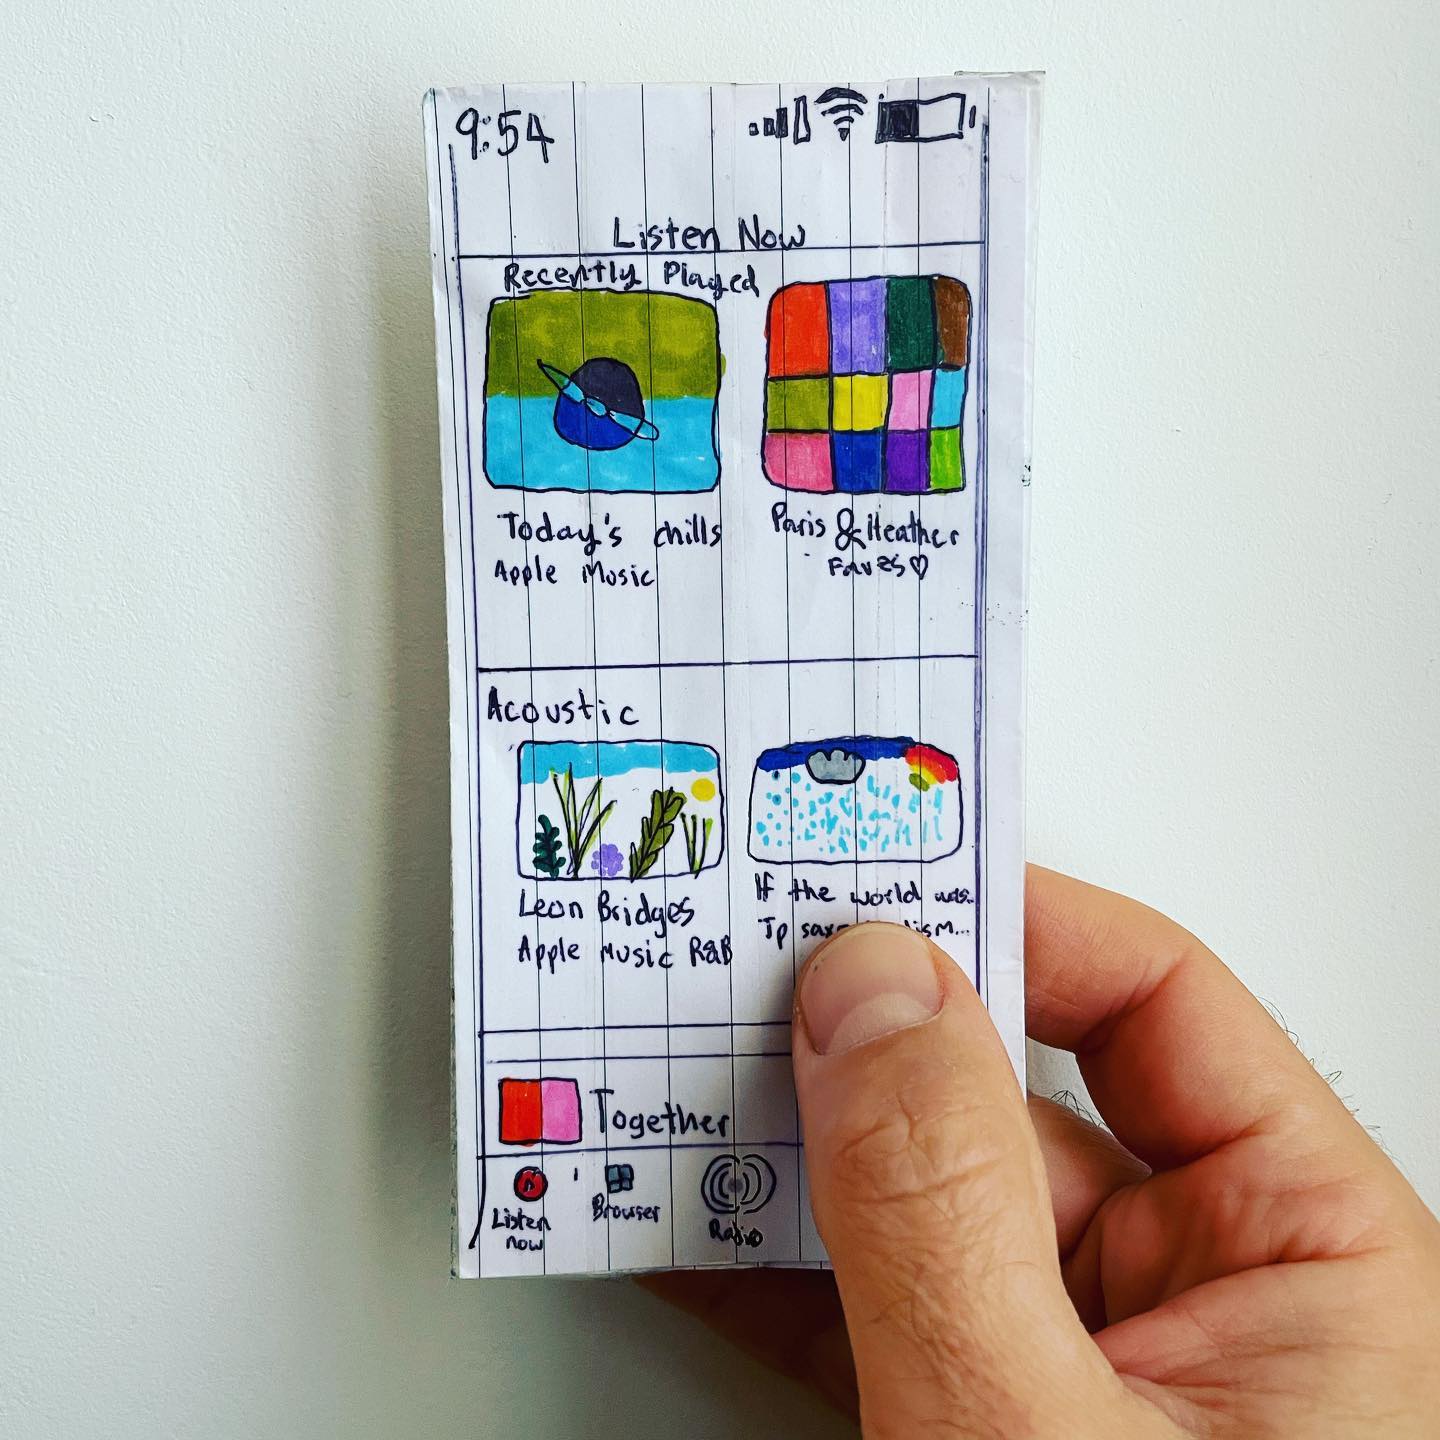 9:54
Listen Now
Recently Played
Today's chills
Apple Music
Paris & Heather
Faves♡
Acoustic
Leon Bridges
Apple Music R&B
If the world was..
Jp
Together
Listen
now
Browser
Radio